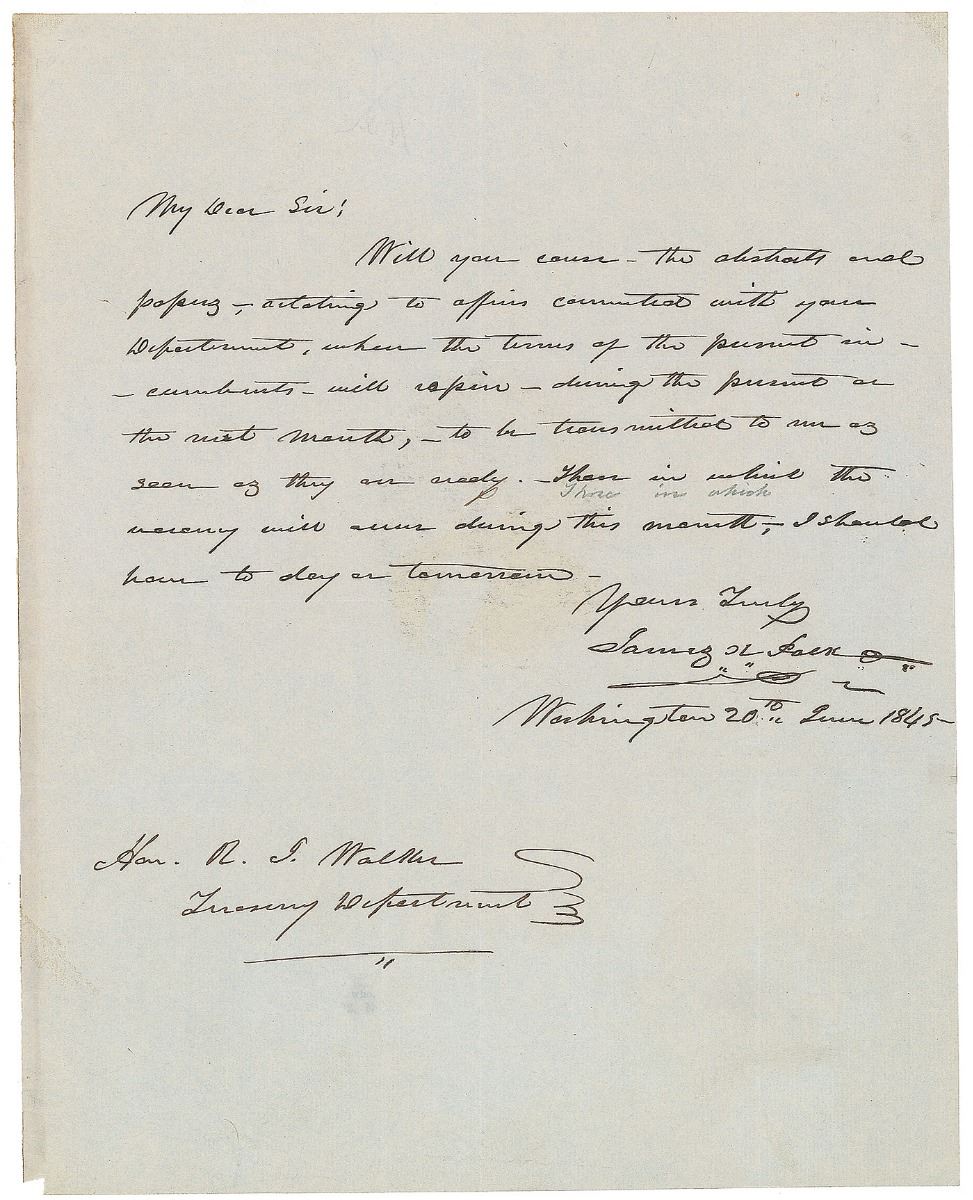 My Dear Sir!
Will you cause - the abstracts and
papers, - relating to offices connected with your
Department, where the terms of the present in-
- cumbents - will expire - during the present or
the next month, - to be transmitted to me as
soon as they are ready. - Those in which the
Those in which
vacancy will occur during this month, - I should
have to day or tomorrow -
Yours Truly
James K Polk
Washington 20th June 1845-
Hon. R. J. Walker
Treasury Department